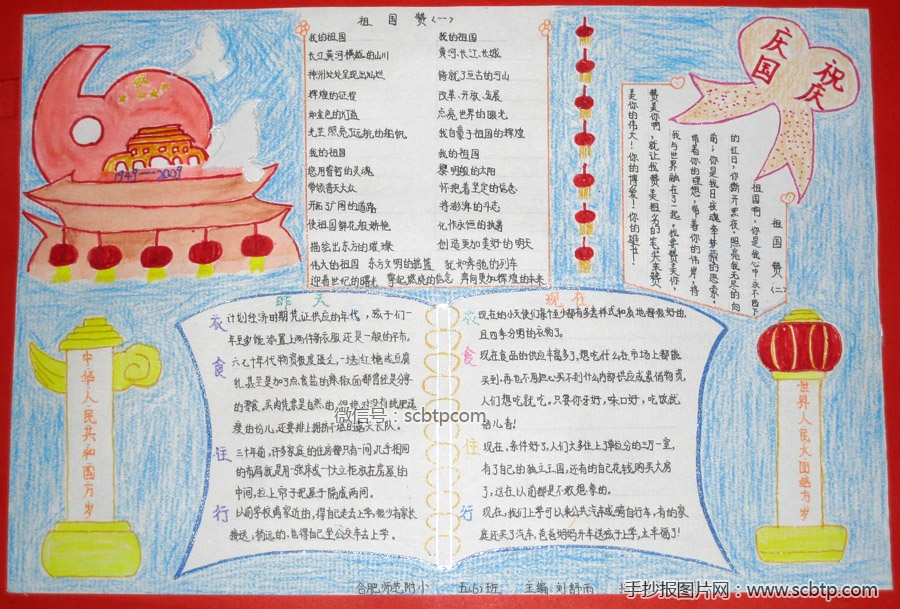 祖国赞(一)
我的祖国
长江黄河横越的山川
神洲处处呈现出灿烂
辉煌的征程
如金色的灯盏
光芒照亮了远航的祖帆
我的祖国
您用睿哲的灵魂
带领着大众
开拓了广阔的道路
使祖国鲜花般娇艳
描绘出东方的璀璨
伟大的祖国 东方文明的摇篮 犹如奔驰的列车
迎着世纪的曙光 擎起燃烧的信念 奔向更加辉煌的未来
我的祖国
黄河、长江、长城
铸就了亘古的河山
改革、开放、发展
点亮世界的眼光
我自豪于祖国的辉煌
我的祖国
黎明般的太阳
怀抱着坚定的信念
将澎湃的斗志
化作永恒的执着
创造更加美好的明天
庆国
祝庆
祖国赞(二)
祖国啊,你是我心中永不西下
的红日,你撕开黑夜,照亮我无尽的向
前;你是我日夜魂牵梦萦的思索,
带着你的理想,带着你的伟岸,将
我与世界融在了一起。我要赞美你,
赞美你啊,就让我赞美祖先的笔尖来赞
美你的伟大!你的博爱!你的挺节!
1949—2009
中华人民共和国万岁
世界人民大团结万岁
昨天
衣 计划经济时期凭证供应的年代,孩子们一
年至多能添置上两件新衣服还是一般的平布。
食 六七十年代物资极度匮乏,一块红糖或豆腐
乳,甚至是加了点食盐的辣椒面都曾经是分享
的零食。买肉凭票是自然的,但你对没有挑肥选
瘦的份儿,还要排上拥挤不堪的庞大长队。
住 三十年前,许多家庭的住房都只有一间,几乎相同
的布局就是用一张床或一个大立柜放在房屋的
中间,拉上帘子把屋子隔成两间。
行 以前学校离家近的,得自己走去上学,很少有家长
接送,稍远的,也得自己坐公交车去上学。
现在
衣 现在的小天使们身上至少都有多套样式和质地都很好的,
且四季分明的衣物了。
食 现在食品的供应丰富多了,想吃什么在市场上都能
买到,再也不用担心买不到什么内部供应或紧俏物资,
人们想吃就吃。只要你牙好,味口好,吃饭就
倍儿香!
住 现在,条件好了,人们大多住上了单位分的二万一室,
有了自己的独立王国,还有的自己花钱购买大房
了,这在以前都是不敢想象的。
行 现在,我们上学可以乘公共汽车或骑自行车,有的家
庭还买了汽车,爸爸妈妈开车送孩子上学,太幸福了!
微信号:scbtpcom
合肥师范附小 五(5)班 主编 刘舒雨
手抄报图片网:www.scbtp.com